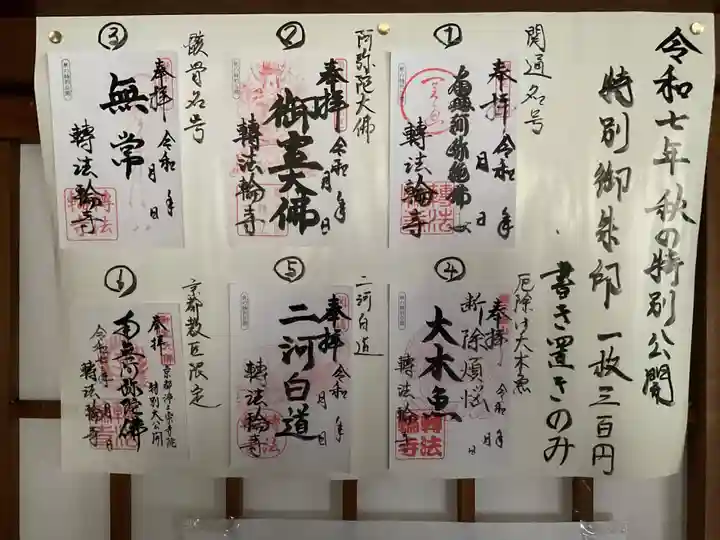 令和七年 秋の特別公開
特別御朱印 一枚三百円
書き置きのみ
①
開通名号
奉拝 令和 年 月 日
南無阿弥陀佛
轉法輪寺
②
阿弥陀大佛
奉拝 令和 年 月 日
御室大佛
轉法輪寺
③
骸骨名号
奉拝 令和 年 月 日
無常
轉法輪寺
④
厄除け大木魚
奉拝 令和 年 月 日
断除煩悩
大木魚
轉法輪寺
⑤
二河白道
奉拝 令和 年 月 日
二河白道
轉法輪寺
⑥
京都数量限定
奉拝
特別大公開
南無阿弥陀佛
令和七年 月 日
轉法輪寺